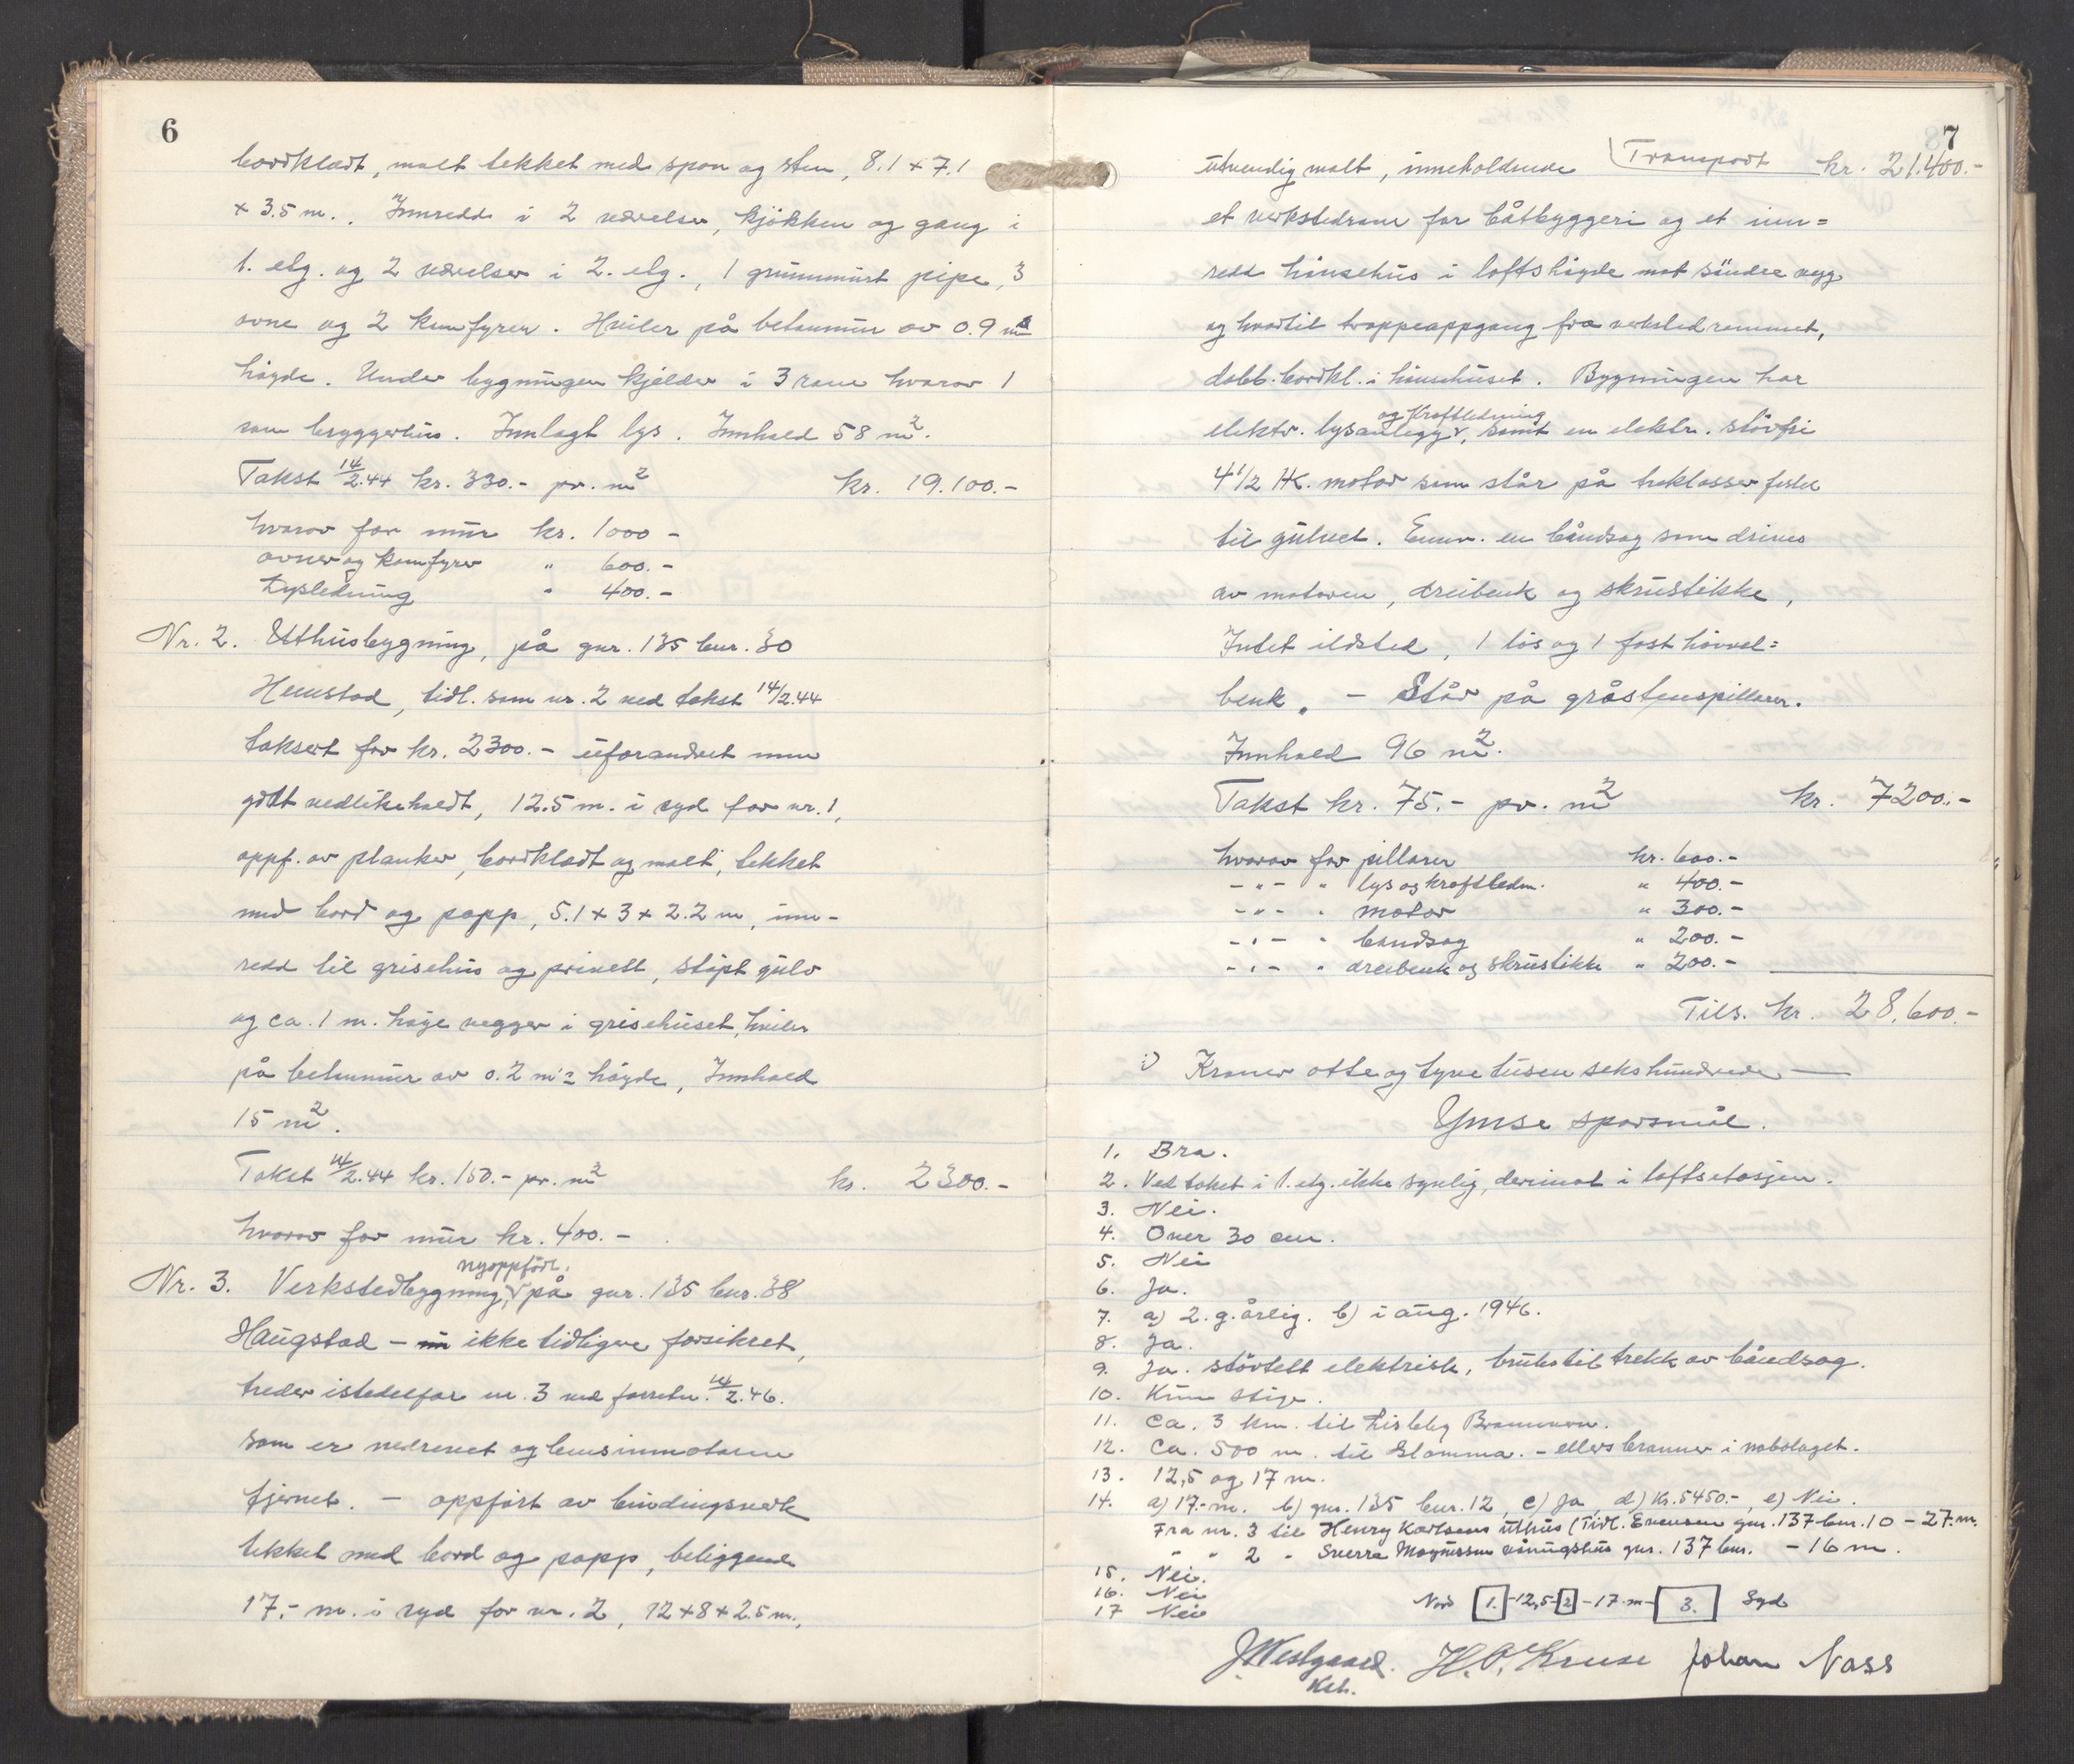 6
bordklædt, malt tekket med spon og sten, 8.1 + 7.1
+ 3.5 m.. Innredd i 2 værelser, kjökken og gang i
1. etg. og 2 værelser i 2. etg., 1 grunnmurt pipe, 3
ovne og 2 komfyrer. Hviler på betonmur av 0.9 m's
höyde. Under bygningen kjelder i 3 rom hvorav 1
som bryggerhus. Innlagt lys. Innhold 58 m².
Takst 14/2.44 kr. 330.- pr. m² kr. 19.100.-
hvorav for mur kr. 1000 -
ovner og komfyrer " 600.-
Lysledning " 400.-
Nr. 2. Uthusbygning, på gnr. 135 bnr. 30
Hemstad, tidl. som nr. 2 ved takst 14/2.44
taksert for kr. 2300.- uforandret men
godt vedlikeholdt, 12.5 m. i syd for nr. 1,
oppf. av planker, bordklædt og malt, tekket
med bord og papp, 5.1 + 3 + 2.2 m, inn-
redd til grisehus og privett, støpt gulv
og ca. 1 m. høye vegger i grisehuset, hviler
på betonmur av 0.2 m's høyde, Innhold
15 m².
Takst 14/2.44 kr. 150.- pr. m² kr. 2300.-
hvorav for mur kr. 400.-
nyoppfört.
Nr. 3. Verkstedbygning, på gnr. 135 bnr. 38
Haugstad - ikke tidligere forsikret,
treder istedetfor nr. 3 ved forretn. 14/2.46.
som er nedrevet og bensinmotoren
fjernet. - oppfört av bindingsverk
tekket med bord og papp, beliggende
17.- m. i syd for nr. 2, 12+8+2.5 m.,
7
utvendig malt, inneholdende Transport kr. 21.400.-
et verkstedrom for båtbyggeri og et inn=
redd hönsehus i loftshöyde mot söndre vegg
og hvortil trappeoppgang fra verkstedrommet,
dobb. bordkl. i hönsehuset. Bygningen har
og Kraftledning
elektr. lysanlegg, samt en elektr. stövfri
4 1/2 HK. motor som står på treklosser festet
til gulvet. Envr. en båndsag som drives
av motoren, dreibenk og skrustikke,
Intet ildsted, 1 lös og 1 fast hövvel=
benk. - Står på gråstenspillarer.
Innhold 96 m².
Takst kr. 75.- pr. m² kr. 7200.-
hvorav for pillarer kr. 600.-
- " - " lys og kraftledn. " 400.-
- " - " motor " 300.-
- " - " bandsag " 200.-
- " - " dreibenk og skrustikke " 200.-
Tils. kr. 28.600.-
:) Kroner otte og tyve tusen sekshundrede
Ymse sporsmål.
1. Bra.
2. Ved taket i 1. etg. ikke synlig, derimot i loftsetasjen.
3. Nei.
4. Over 30 cm.
5. Nei
6. Ja.
7. a) 2. g. årlig. b) i aug. 1946.
8. Ja.
9. Ja. stövtett elektrisk, brukes til trekk av båndsag.
10. Kun stige.
11. Ca. 3 km. til Lisleby Brannvern.
12. Ca. 500 m. til Glomma. - ellers brønner i nabolaget.
13. 12,5 og 17 m.
14. a) 17.- m. b) gnr. 135 bnr. 12, c) Ja, d) Kr. 5450.-, e) Nei.
Fra nr. 3 til Henry Karlsens uthus (Tidl. Evensen gnr. 137 bnr. 10 - 27. m.
" " 2 " Sverre Magnussen våningshus gnr. 137 bnr. - 16 m.
15. Nei.
16. Nei
17 Nei
Nord 1. -12,5- 2 -17. m- 3. Syd
J. Westgaard. H. O. Kruse Johan Nass